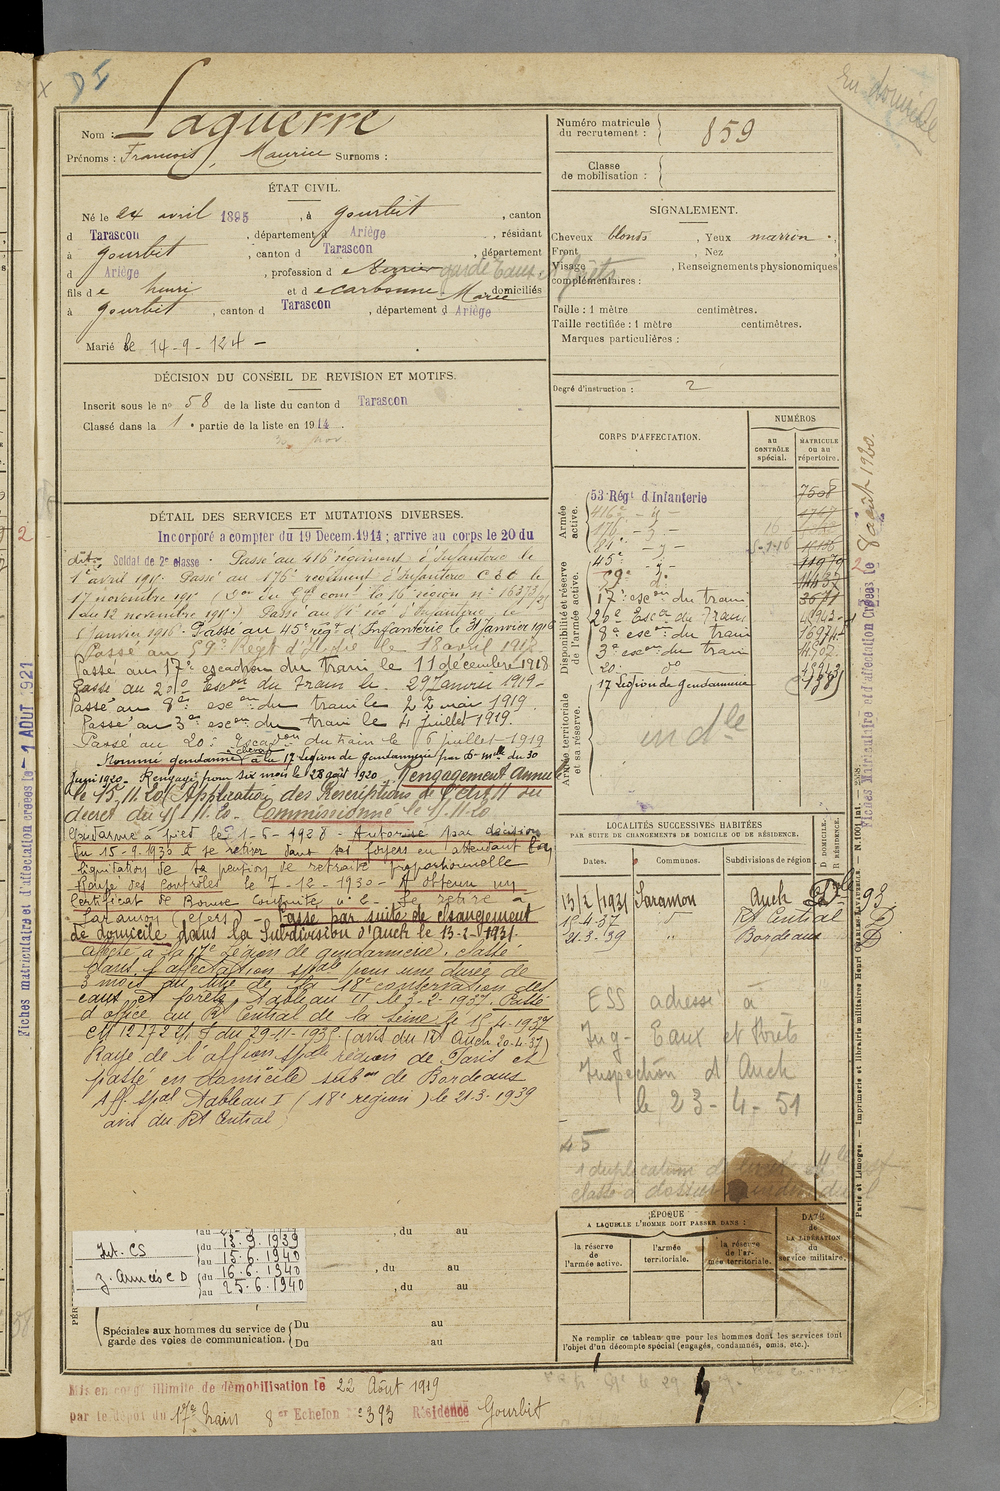 En domicile
Nom : Laguerre
Prénoms : François, Maurice Surnoms :
ÉTAT CIVIL.
Né le 24 avril 1895, à Gourbit, canton
d Tarascon, département d Ariège, résidant
à Gourbit, canton d Tarascon, département
d Ariège, profession d garde Eaux et forêts
fils de henri et de carbonne Marie domiciliés
à Gourbit, canton d Tarascon, département d Ariège
Marié le 14-9-124 -
DÉCISION DU CONSEIL DE REVISION ET MOTIFS.
Inscrit sous le n° 58 de la liste du canton d Tarascon
Classé dans la 1e partie de la liste en 1914.
DÉTAIL DES SERVICES ET MUTATIONS DIVERSES.
Incorporé a compter du 19 Decem. 1914 ; arrive au corps le 20 du
dit. Soldat de 2e classe. Passé au 416 régiment d'Infanterie le
1er avril 1915. Passé au 176e régiment d'Infanterie le
17 novembre 1915
du 12 novembre 1915) Passé au rég d'Infanterie le
janvier 1916. Passé au 45e régt d'Infanterie le 31 Janvier 1916
Passé au 59e Régt d'Inf le 18 avril
Passé au 17e escadron du train le 11 décembre 1918
Passé au 20e Escon du Train le 29 Janvier 1919
Passé au 8e escon du train le 22 mai 1919
Passé au 3e escon du train le 4 juillet 1919.
Passé au 20e Escadon du train le 6 juillet 1919
Nommé gendarme à cheval à la 17 Légion de Gendarmerie par Don mlle du 30
Juin 1920 - Rengagé pour six mois le 28 août 1920. Rengagement annulé
le 15.11.20 (Application des Prescriptions de l'art 11 du
décret du 15.11.20. Commissionné le 15.11.20
Gendarme à pied le 1-6-1928 - Autorisé par décision
du 15-9-1930 à se retirer dans ses foyers en attendant la
liquidation de sa pension de retraite proportionnelle
Rayé des contrôles le 7-12-1930 - A obtenu un
certificat de Bonne Conduite. Se retire à
Saramon (Gers) - Passé par suite de changement
de domicile dans la Subdivision d'Auch le 13-2-1931.
Affecté à la 17e légion de gendarmerie. Classé
dans l'affectation spale pour une durée de
3 mois au titre de la 18e conservation des
eaux et forêts Tableau II le 3-2-1937. Passé
d'office au Rt Central de la Seine le 15-4-1937
(avis du Rt Auch 20-4-37)
Rayé de l'affion spale région de Paris et
passé en domicile subon de Bordeaux
Aff spal Tableau I (18e région) le 21-3-1939
avis du Rt Central
Int. CS
du 13.9.1939
au 15.6.1940
Z. Armées CD
du 16.6.1940
au 25.6.1940
, du au
, du au
, du au
Spéciales aux hommes du service de garde des voies de communication.
Du au
Du au
Mis en congé illimité de démobilisation le 22 Août 1919
par le dépôt du 17e Train 8er Echelon n° 393 Résidence Gourbit
Numéro matricule du recrutement : 859
Classe de mobilisation :
SIGNALEMENT.
Cheveux blonds, Yeux marron
Front, Nez
Visage, Renseignements physionomiques
complémentaires :
Taille : 1 mètre centimètres.
Taille rectifiée : 1 mètre centimètres.
Marques particulières :
Degré d'instruction : 2
CORPS D'AFFECTATION.
NUMÉROS
au CONTRÔLE spécial.
MATRICULE ou au répertoire.
Armée active.
Disponibilité et réserve de l'armée active.
Armée territoriale et sa réserve.
53 Régt d'Infanterie 7508
416e - d° -
176e - d° -
81e - d° -
45e - d° - 11979
59e d° 14437
17e escon du train 3671
20e Escon du Train
8e escon du train
3e escon du train
20e d°
17 Légion de Gendarmerie
en dle
LOCALITÉS SUCCESSIVES HABITÉES
PAR SUITE DE CHANGEMENTS DE DOMICILE OU DE RÉSIDENCE.
Dates. Communes. Subdivisions de région
D. DOMICILE. R. RÉSIDENCE.
13/2/1931 Saramon Auch Dle 93
15-4-37 " Rt Central D
21-3-39 " Bordeaux D
ESS adressé à
Ing- Eaux et Forêts
Inspection d'Auch
le 23-4-51
45
1 duplicatum de livret
classé à dossier individuel
ÉPOQUE
A LAQUELLE L'HOMME DOIT PASSER DANS :
la réserve de l'armée active.
l'armée territoriale.
la réserve de l'armée territoriale.
DATE de LA LIBÉRATION du service militaire.
Ne remplir ce tableau que pour les hommes dont les services font
l'objet d'un décompte spécial (engagés, condamnés, omis, etc.).
Fiches matriculaire et d'affectation créées le 1 AOUT 1921
Fiches Matriculaire et d'affectation Créées le 8 août 1920.
Paris et Limoges. — Imprimerie et librairie militaires Henri CHARLES-LAVAUZELLE. — N. 100 Int.